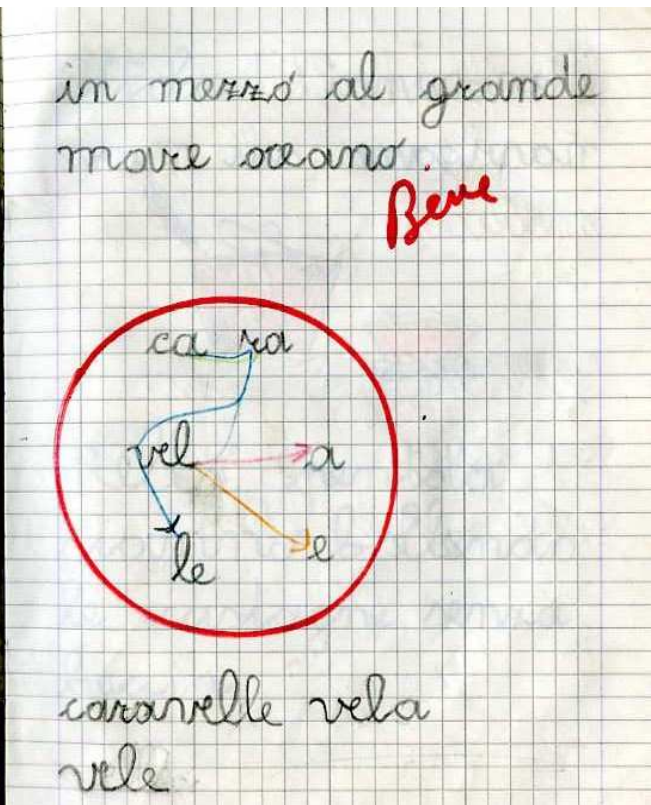 in mezzo al grande
mare oceano
Bene
ca ra
vel a
le e
caravelle vela
vele